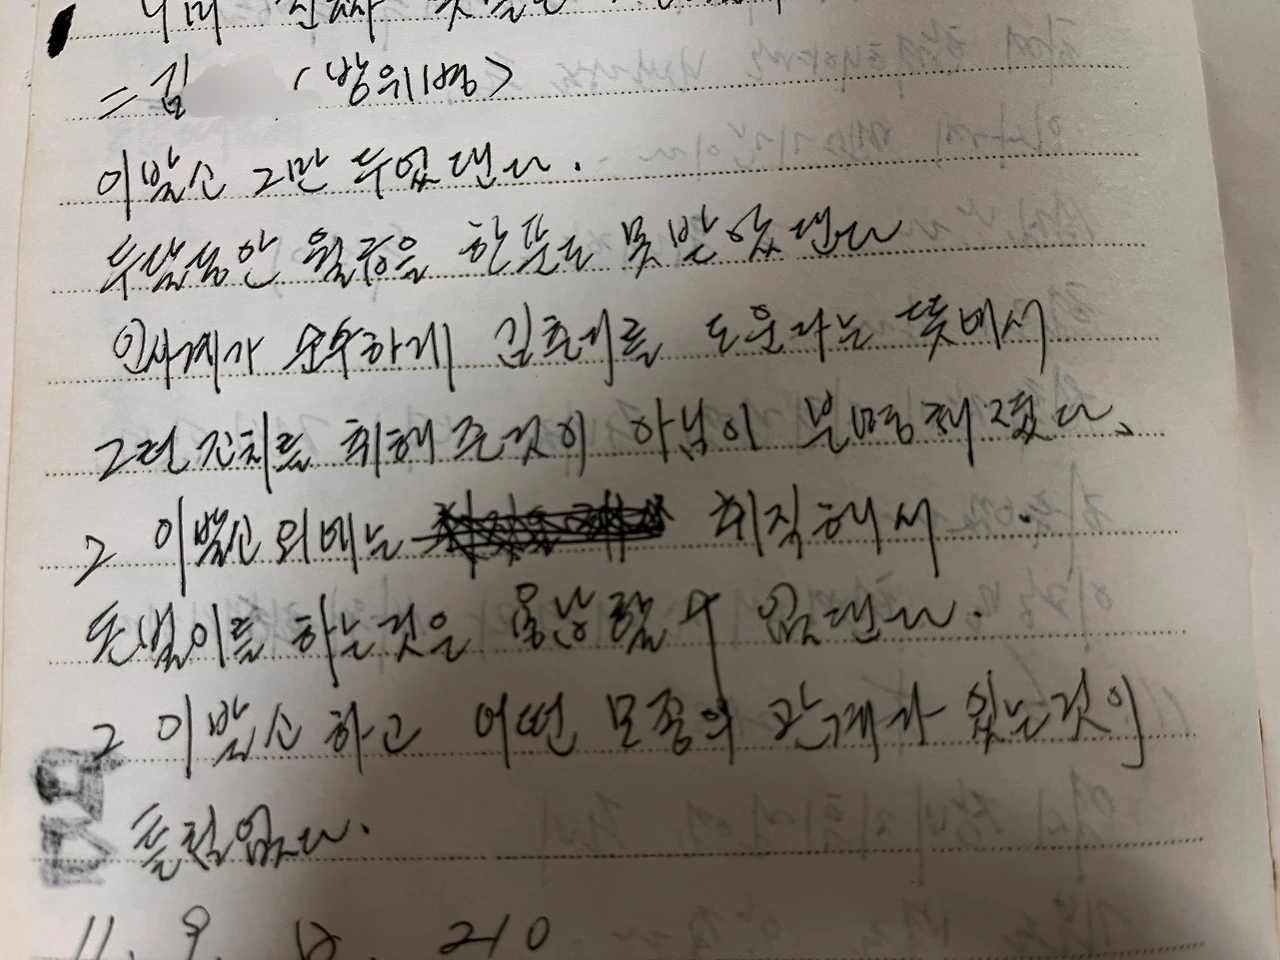 = 김 (방위병)
이발소 그만 두었댄다.
두달동안 월급을 한푼도 못받았댄다
인사계가 순수하게 김 를 도운다는 뜻에서
그런 조치를 취해 준것이 아님이 분명해졌다.
그 이발소 외에는 취직해서
돈벌이를 하는것을 용납할수 없댄다.
그 이발소하고 어떤 모종의 관계가 있는것이
틀림없다.
11. 9. 12. 210